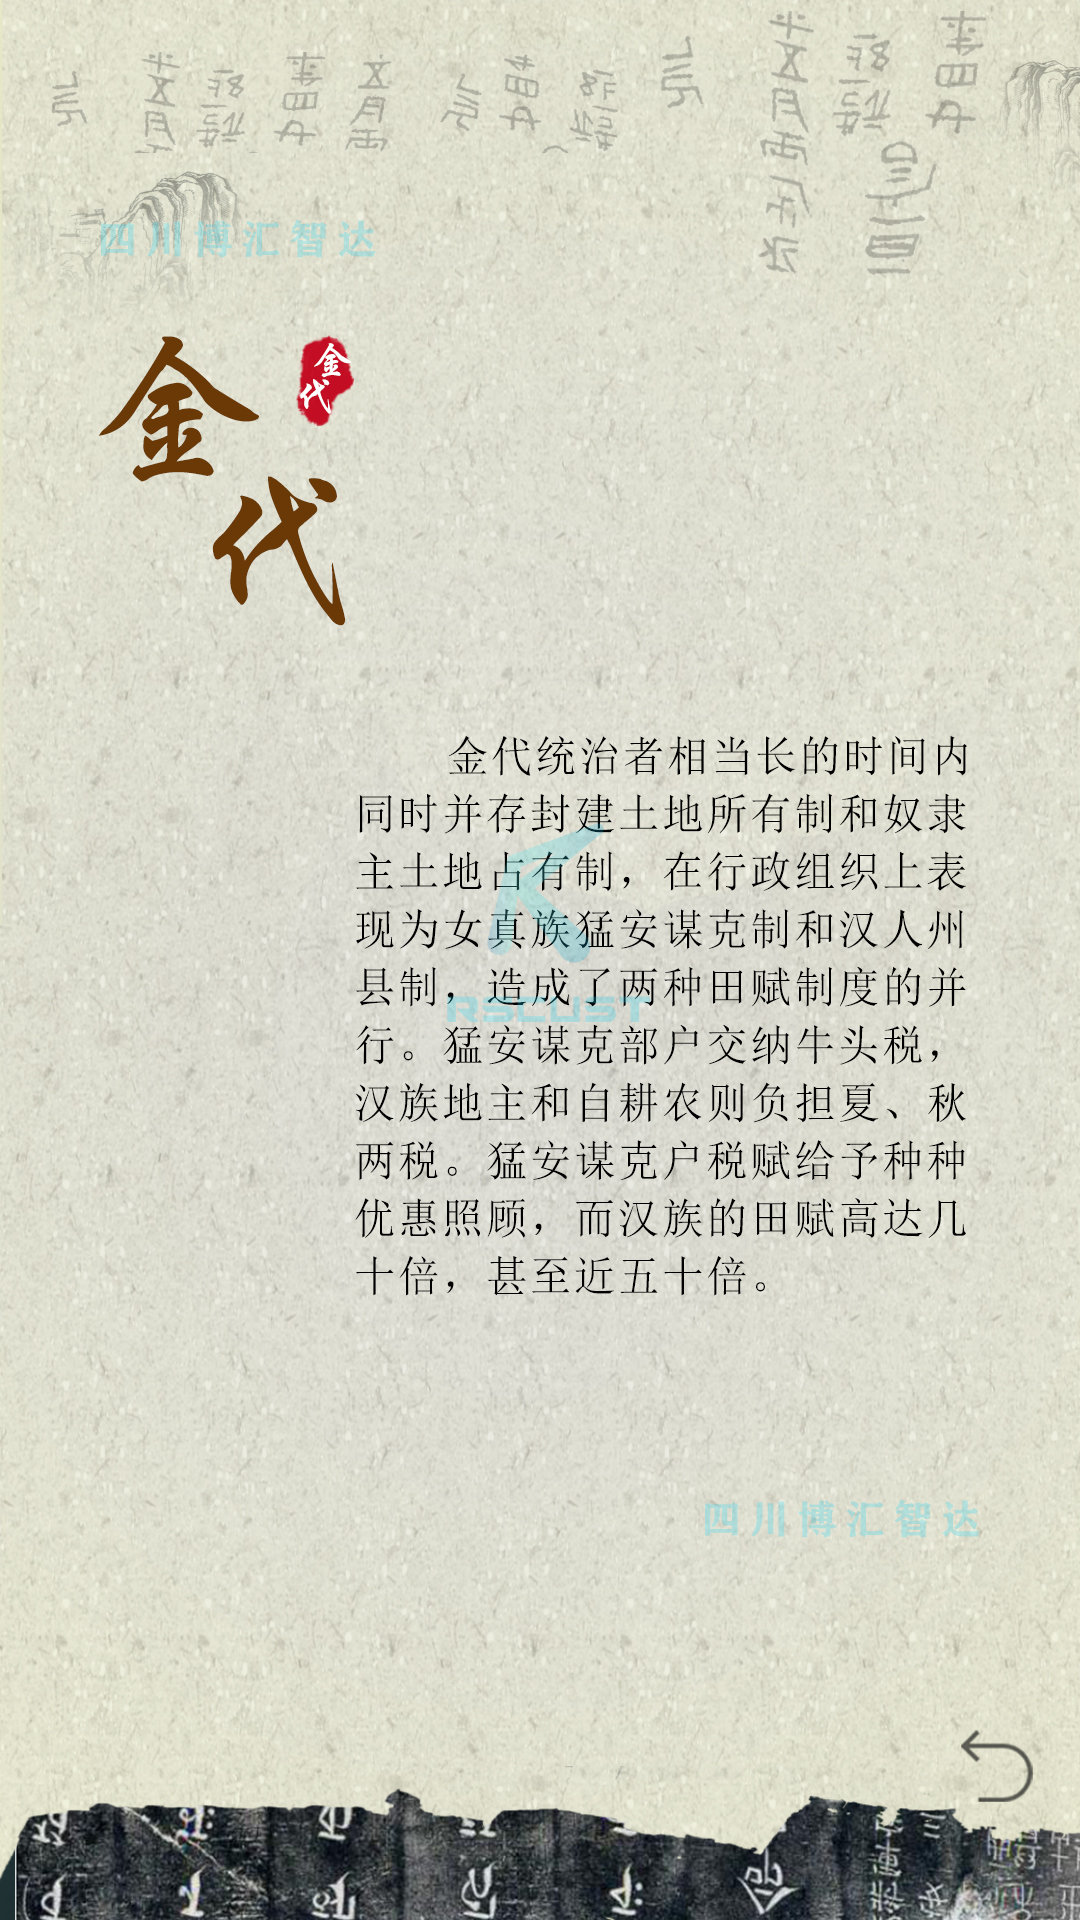 四川博汇智达
金代
金代
金代统治者相当长的时间内
同时并存封建土地所有制和奴隶
主土地占有制，在行政组织上表
现为女真族猛安谋克制和汉人州
县制，造成了两种田赋制度的并
行。猛安谋克部户交纳牛头税，
汉族地主和自耕农则负担夏、秋
两税。猛安谋克户税赋给予种种
优惠照顾，而汉族的田赋高达几
十倍，甚至近五十倍。
RSCUST
四川博汇智达